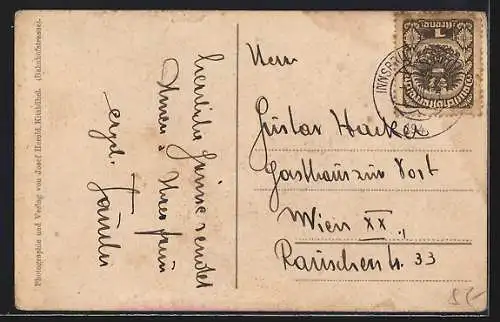 Photographie und Verlag von Josef Herold, Kitzbühel. (Bahnhofstrasse).
herzliche Grüsse sendet
Ihnen u. Ihrer Frau
ergb.
Herrn
Gustav Hacker
Gasthaus zur Post
Wien XX.,
Rauscherstr. 33
INNSBRUCK
Deutschösterreich
1
Krone